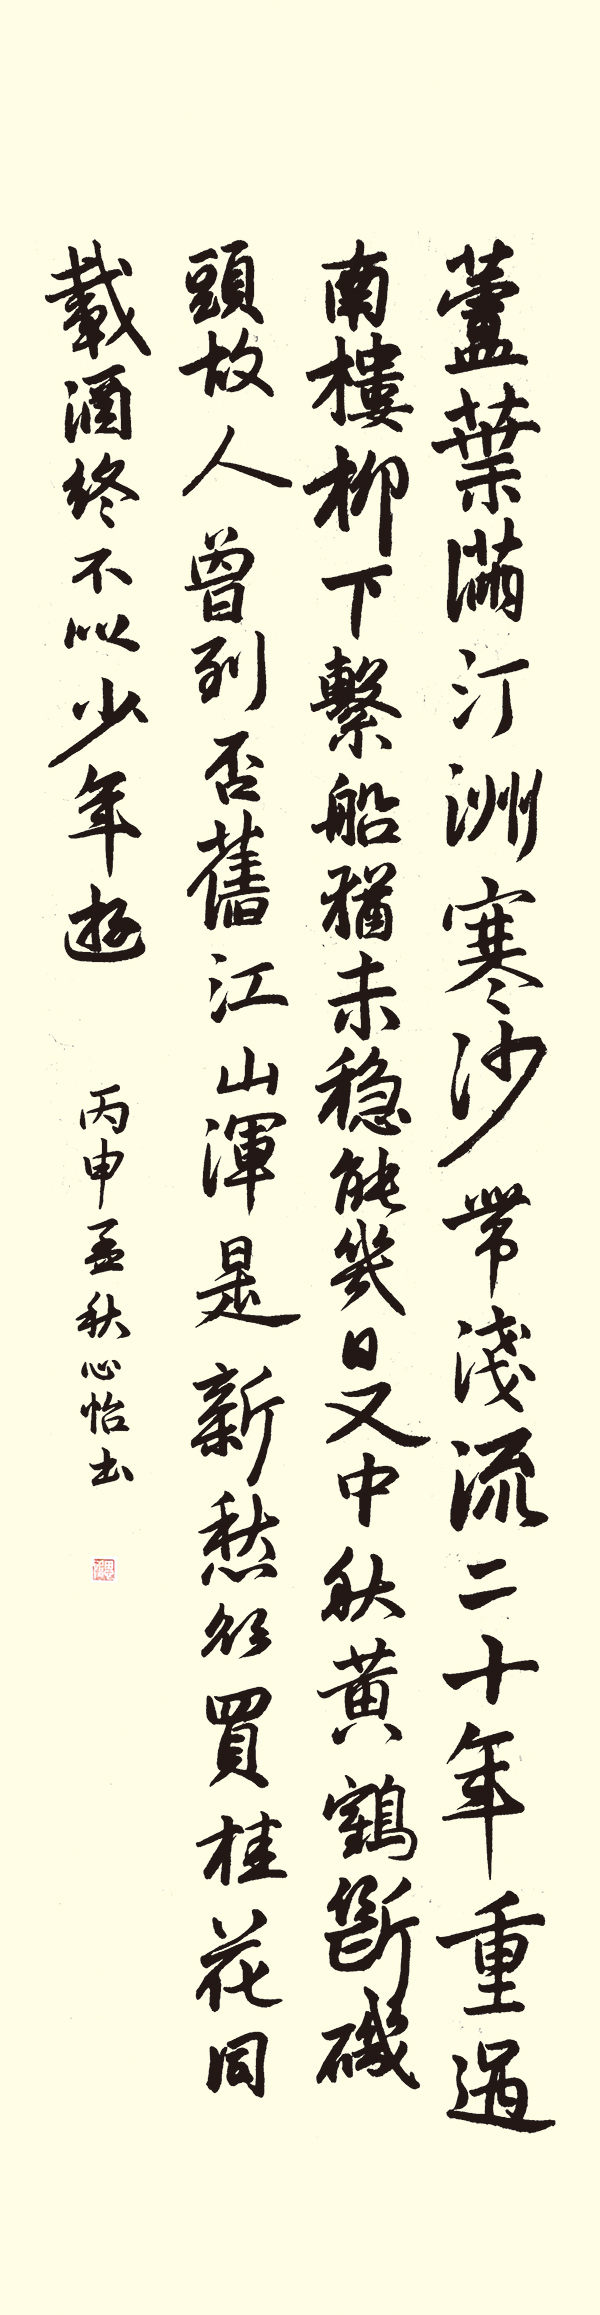 蘆葉滿汀洲寒沙帶淺流二十年重過
南樓柳下繫船猶未穩能幾日又中秋黃鶴斷磯
頭故人曾到否舊江山渾是新愁欲買桂花同
載酒終不似少年遊
丙申孟秋心怡书